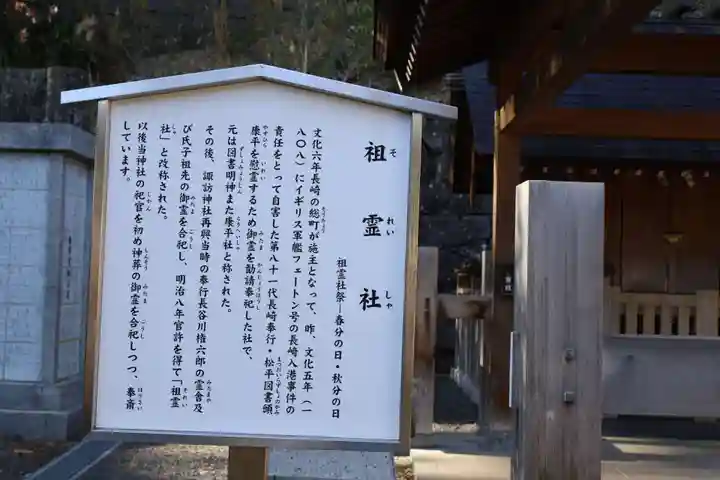 祖霊社
それいしゃ
祖霊社祭―春分の日・秋分の日
文化六年長崎の総町が施主となって、昨、文化五年(一
八〇八)にイギリス軍艦フェートン号の長崎入港事件の
責任をとって自害した第八十一代長崎奉行・松平図書頭
康平を慰霊するため御霊を勧請奉祀した社で、
元は図書明神また康平社と称された。
その後、諏訪神社再興当時の奉行長谷川権六郎の霊舎及
び氏子祖先の御霊を合祀し、明治八年官許を得て「祖霊
社」と改称された。
以後当神社の祀官を初め神葬の御霊を合祀しつつ、奉斎
しています。